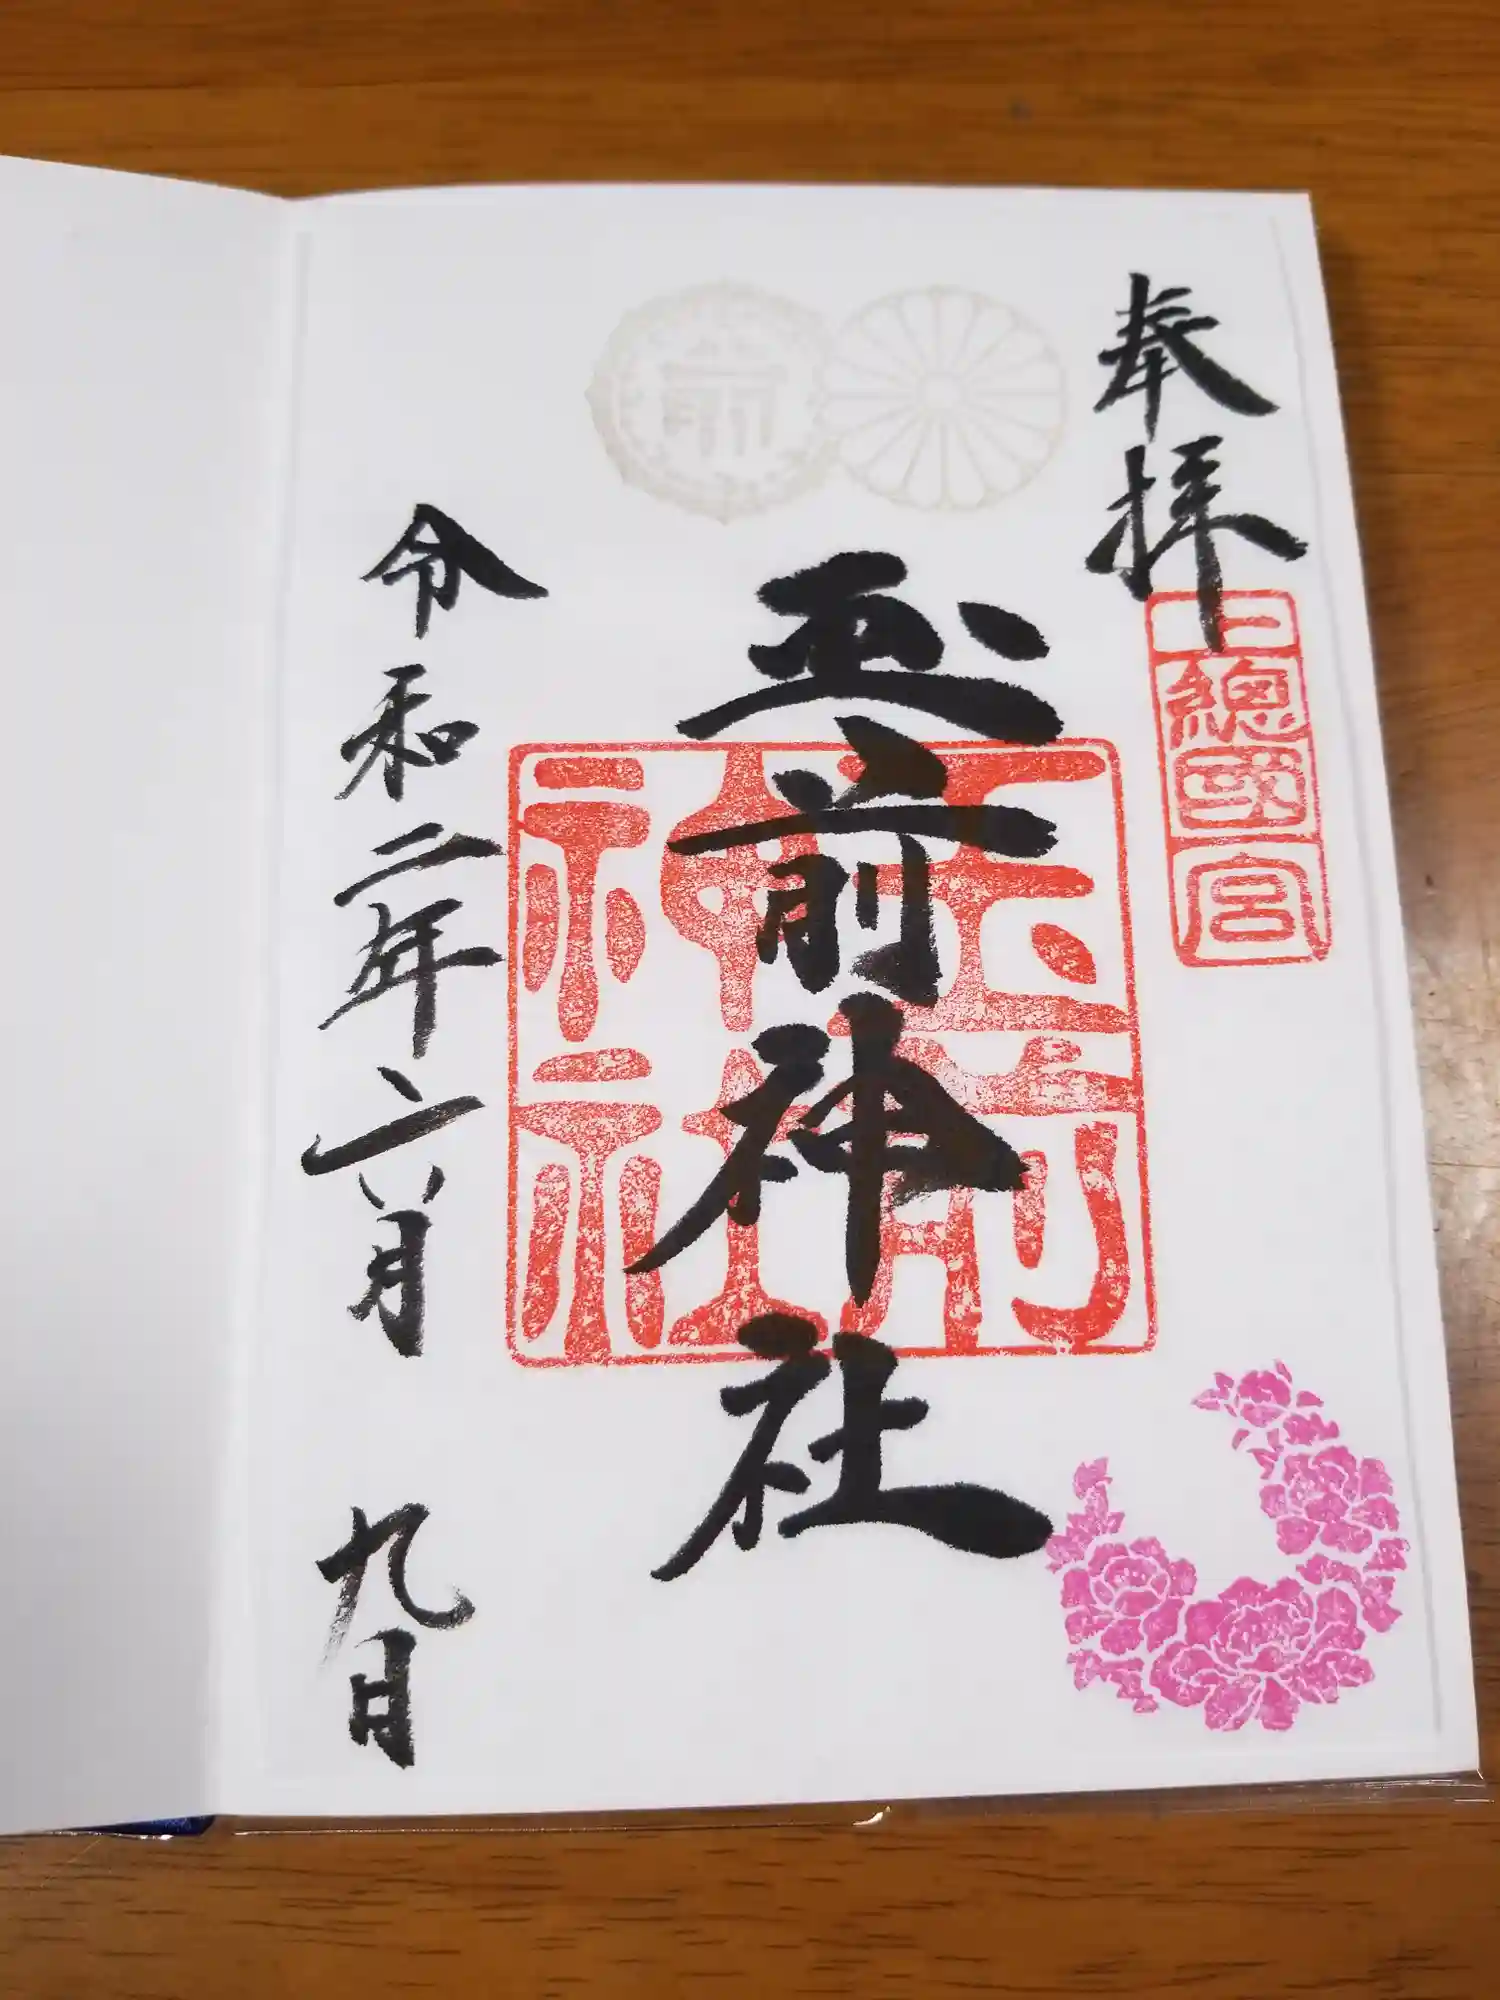 奉拝
上總國一宮
玉前神社
玉前
神社
前
令和二年六月九日